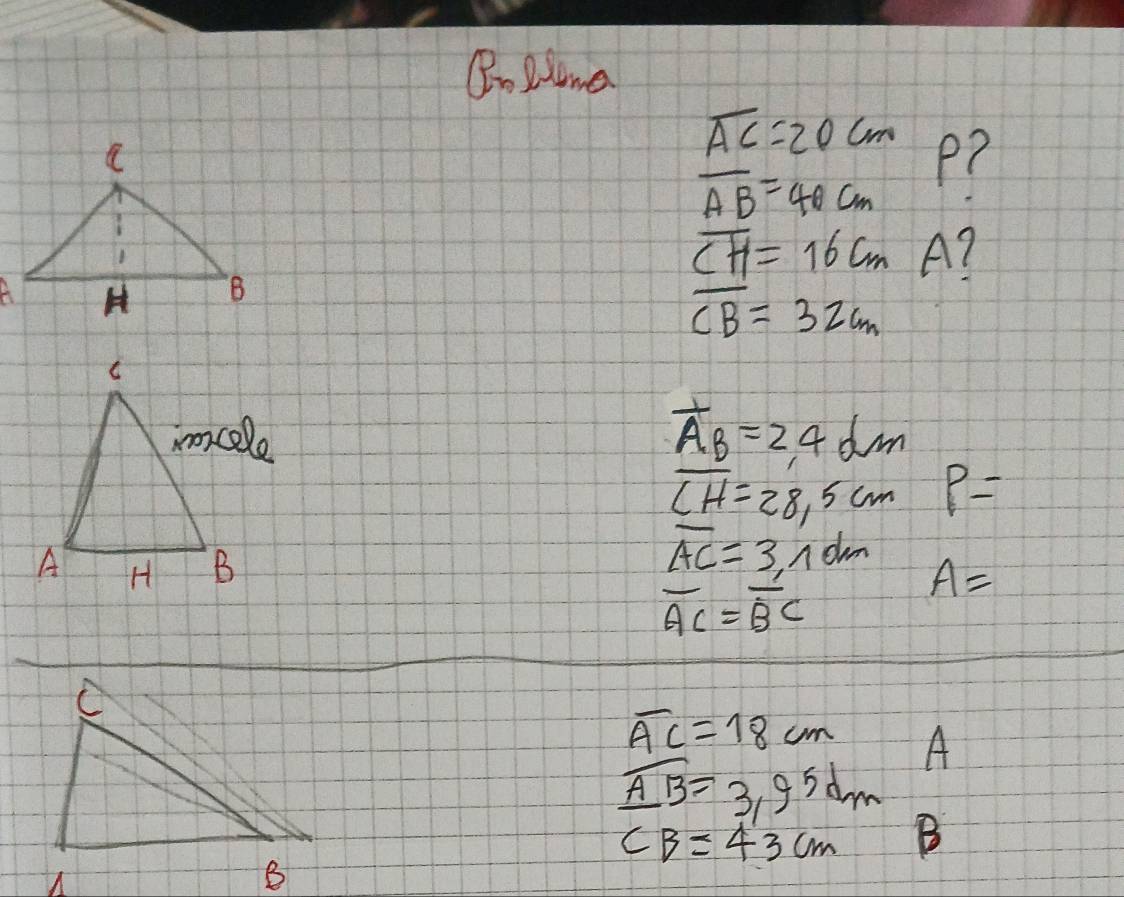 Problema
C
A H B
AC = 20 cm P?
AB = 40 cm
CH = 16 cm A?
CB = 32 cm
C
A H B
AB = 2,4 dm
CH = 28,5 cm P=
AC = 3,1 dm
A=
AC = BC
C
A B
AC = 18 cm A
AB = 3,95 dm
CB = 43 cm B